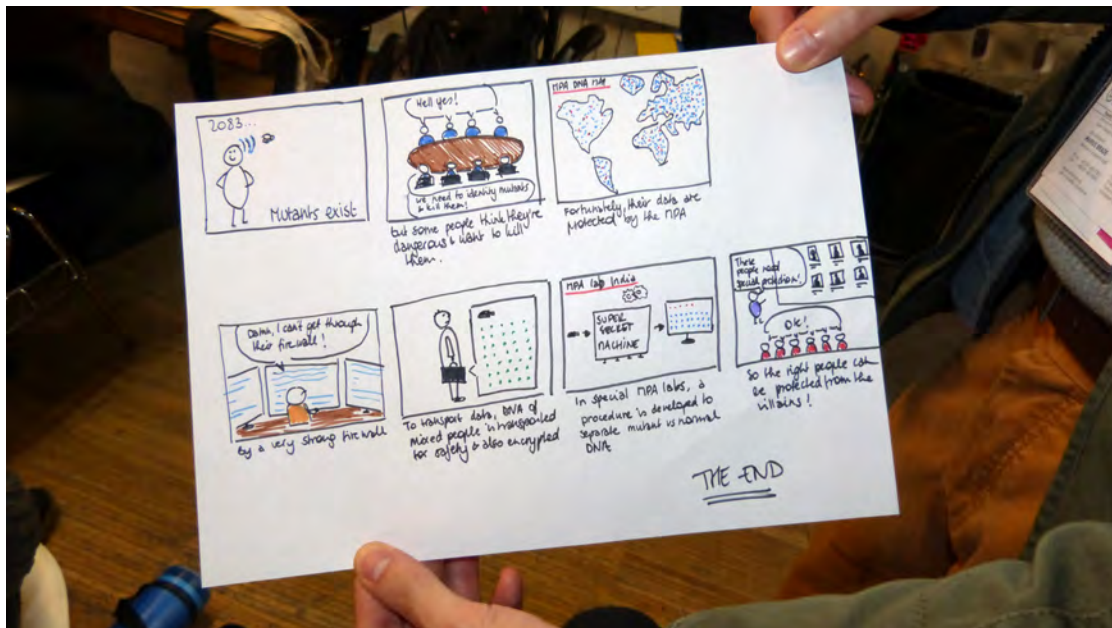 2083...
Mutants exist
Hell yes!
we need to identify mutants
& kill them!
but some people think they're
dangerous & want to kill
them.
MPA DNA MAP
Fortunately, their data are
protected by the MPA
Damn, I can't get through
their firewall!
By a very strong firewall
To transport data, DNA of
mixed people is transported
for safety & also encrypted
MPA lab India
SUPER
SECRET
MACHINE
In special MPA labs, a
procedure is developed to
separate mutant vs normal
DNA
These
people need
special protection!
OK!
So the right people can
be protected from the
villains!
THE END